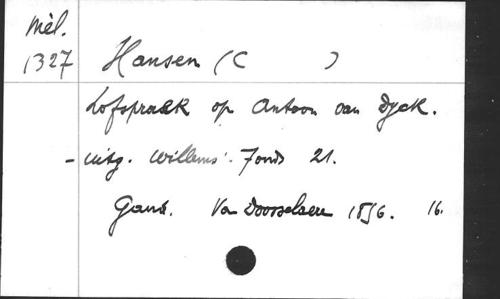 Mèl.
1327 Hansen (C )
Lofspraak op Antoon van Dyck.
- uitg. Willems'. Fonds 21.
Gand. Van Doosselaere 1856. 16.